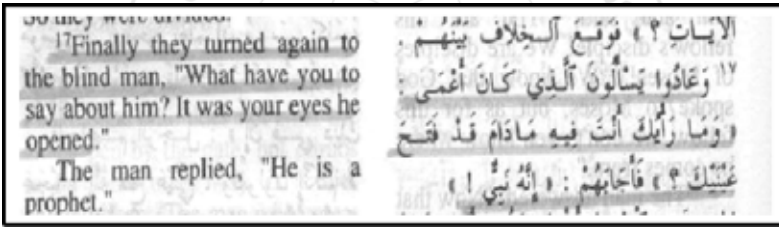 So they were divided.
¹⁷Finally they turned again to
the blind man, "What have you to
say about him? It was your eyes he
opened."
The man replied, "He is a
prophet."
الآيَاتِ ؟ » فَوَقَعَ ٱلْخِلَافُ بَيْنَهُمْ .
¹⁷ وَعَادُوا يَسْأَلُونَ ٱلَّذِي كَانَ أَعْمَى :
« وَمَا رَأْيُكَ أَنْتَ فِيهِ مَادَامَ قَدْ فَتَحَ
عَيْنَيْكَ ؟ » فَأَجَابَهُمْ : « إِنَّهُ نَبِيٌّ ! »